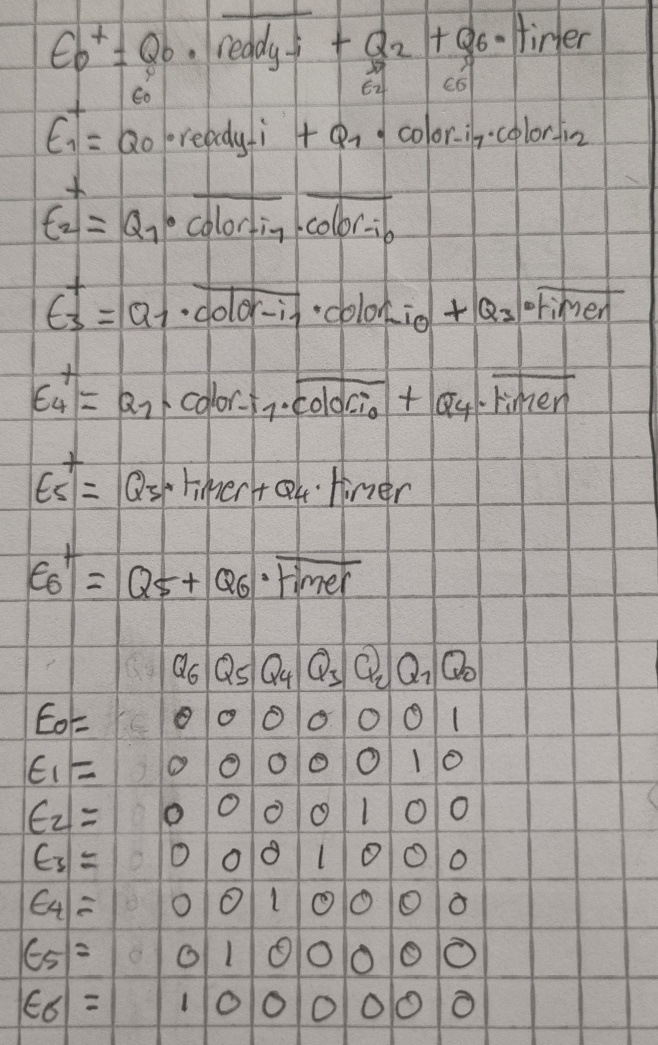 E₀⁺ = Q₀ · \overline{ready_i} + Q₂ + Q₆ · timer
E₀ E₂ E₆
E₁⁺ = Q₀ · ready_i + Q₁ · color_i₁ · color_i₂
E₂⁺ = Q₁ · \overline{color_i₁} · \overline{color_i₀}
E₃⁺ = Q₁ · \overline{color_i₁} · color_i₀ + Q₃ · \overline{timer}
E₄⁺ = Q₁ · color_i₁ · \overline{color_i₀} + Q₄ · \overline{timer}
E₅⁺ = Q₃ · timer + Q₄ · timer
E₆⁺ = Q₅ + Q₆ · \overline{timer}
Q₆ Q₅ Q₄ Q₃ Q₂ Q₁ Q₀
E₀ = 0 0 0 0 0 0 1
E₁ = 0 0 0 0 0 1 0
E₂ = 0 0 0 0 1 0 0
E₃ = 0 0 0 1 0 0 0
E₄ = 0 0 1 0 0 0 0
E₅ = 0 1 0 0 0 0 0
E₆ = 1 0 0 0 0 0 0